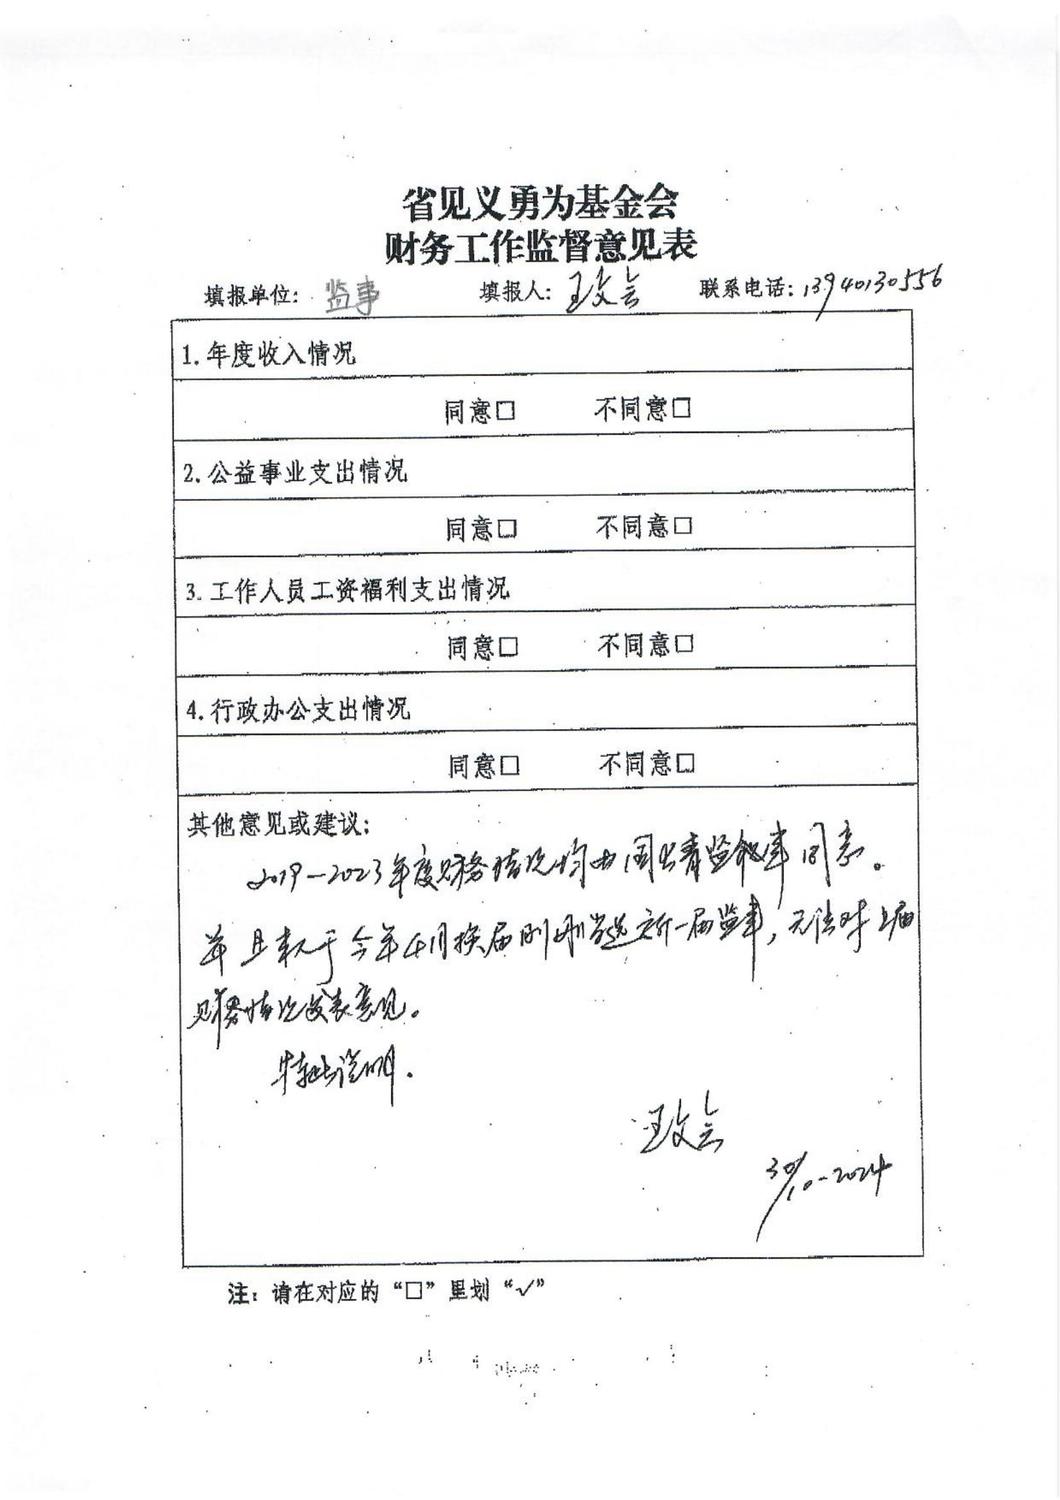 省见义勇为基金会
财务工作监督意见表
填报单位: 监事 填报人: 王文会 联系电话: 13940130556
1.年度收入情况
同意□ 不同意□
2.公益事业支出情况
同意□ 不同意□
3.工作人员工资福利支出情况
同意□ 不同意□
4.行政办公支出情况
同意□ 不同意□
其他意见或建议:
2019-2023年度财务情况均由 监 事同意。
并且本人于今年4月换届刚刚当选新一届监事,无法对上届
财务情况发表意见。
特此说明.
王文会
30/10-2024
注: 请在对应的“□”里划“√”